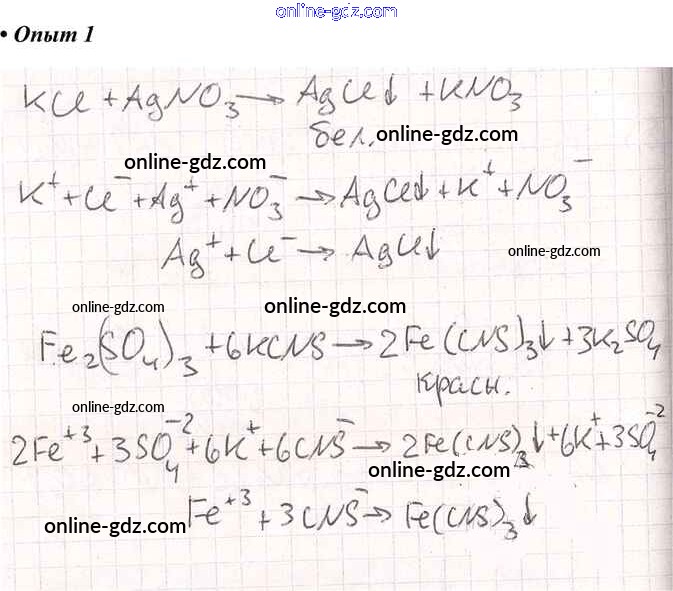 online-gdz.com
• Опыт 1
KCl + AgNO₃ → AgCl↓ + KNO₃
бел. online-gdz.com
online-gdz.com
K⁺ + Cl⁻ + Ag⁺ + NO₃⁻ → AgCl↓ + K⁺ + NO₃⁻
Ag⁺ + Cl⁻ → AgCl↓ online-gdz.com
online-gdz.com online-gdz.com
Fe₂(SO₄)₃ + 6KCNS → 2Fe(CNS)₃↓ + 3K₂SO₄
красн.
online-gdz.com
2Fe⁺³ + 3SO₄⁻² + 6K⁺ + 6CNS⁻ → 2Fe(CNS)₃↓ + 6K⁺ + 3SO₄⁻²
online-gdz.com
online-gdz.com Fe⁺³ + 3CNS⁻ → Fe(CNS)₃↓